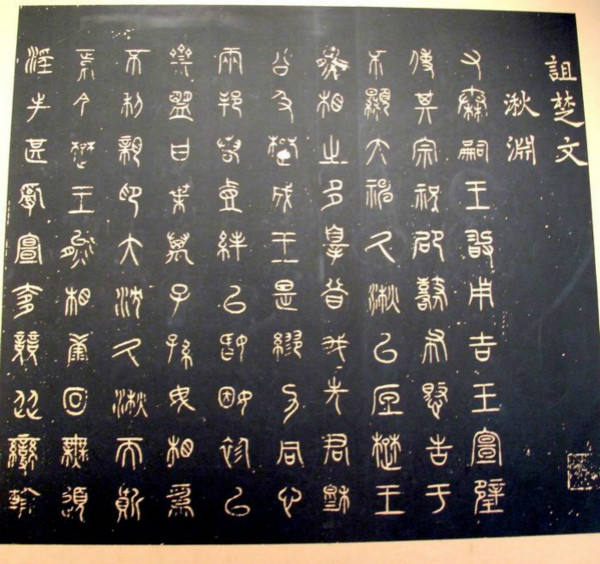 詛楚文
湫淵
又秦嗣王敢用吉玉宣璧
使其宗祝卲鼛布憝告于
不顯大神久湫以底楚王
熊相之多辠昔我先君穆
公及楚成王是繆力同心
兩邦若壹絆以婚姻袗以
齋盟曰枼萬子孫毋相為
不利親卬大沈久湫而質
焉今楚王熊相康回無道
淫失甚亂宣奓競從變輸